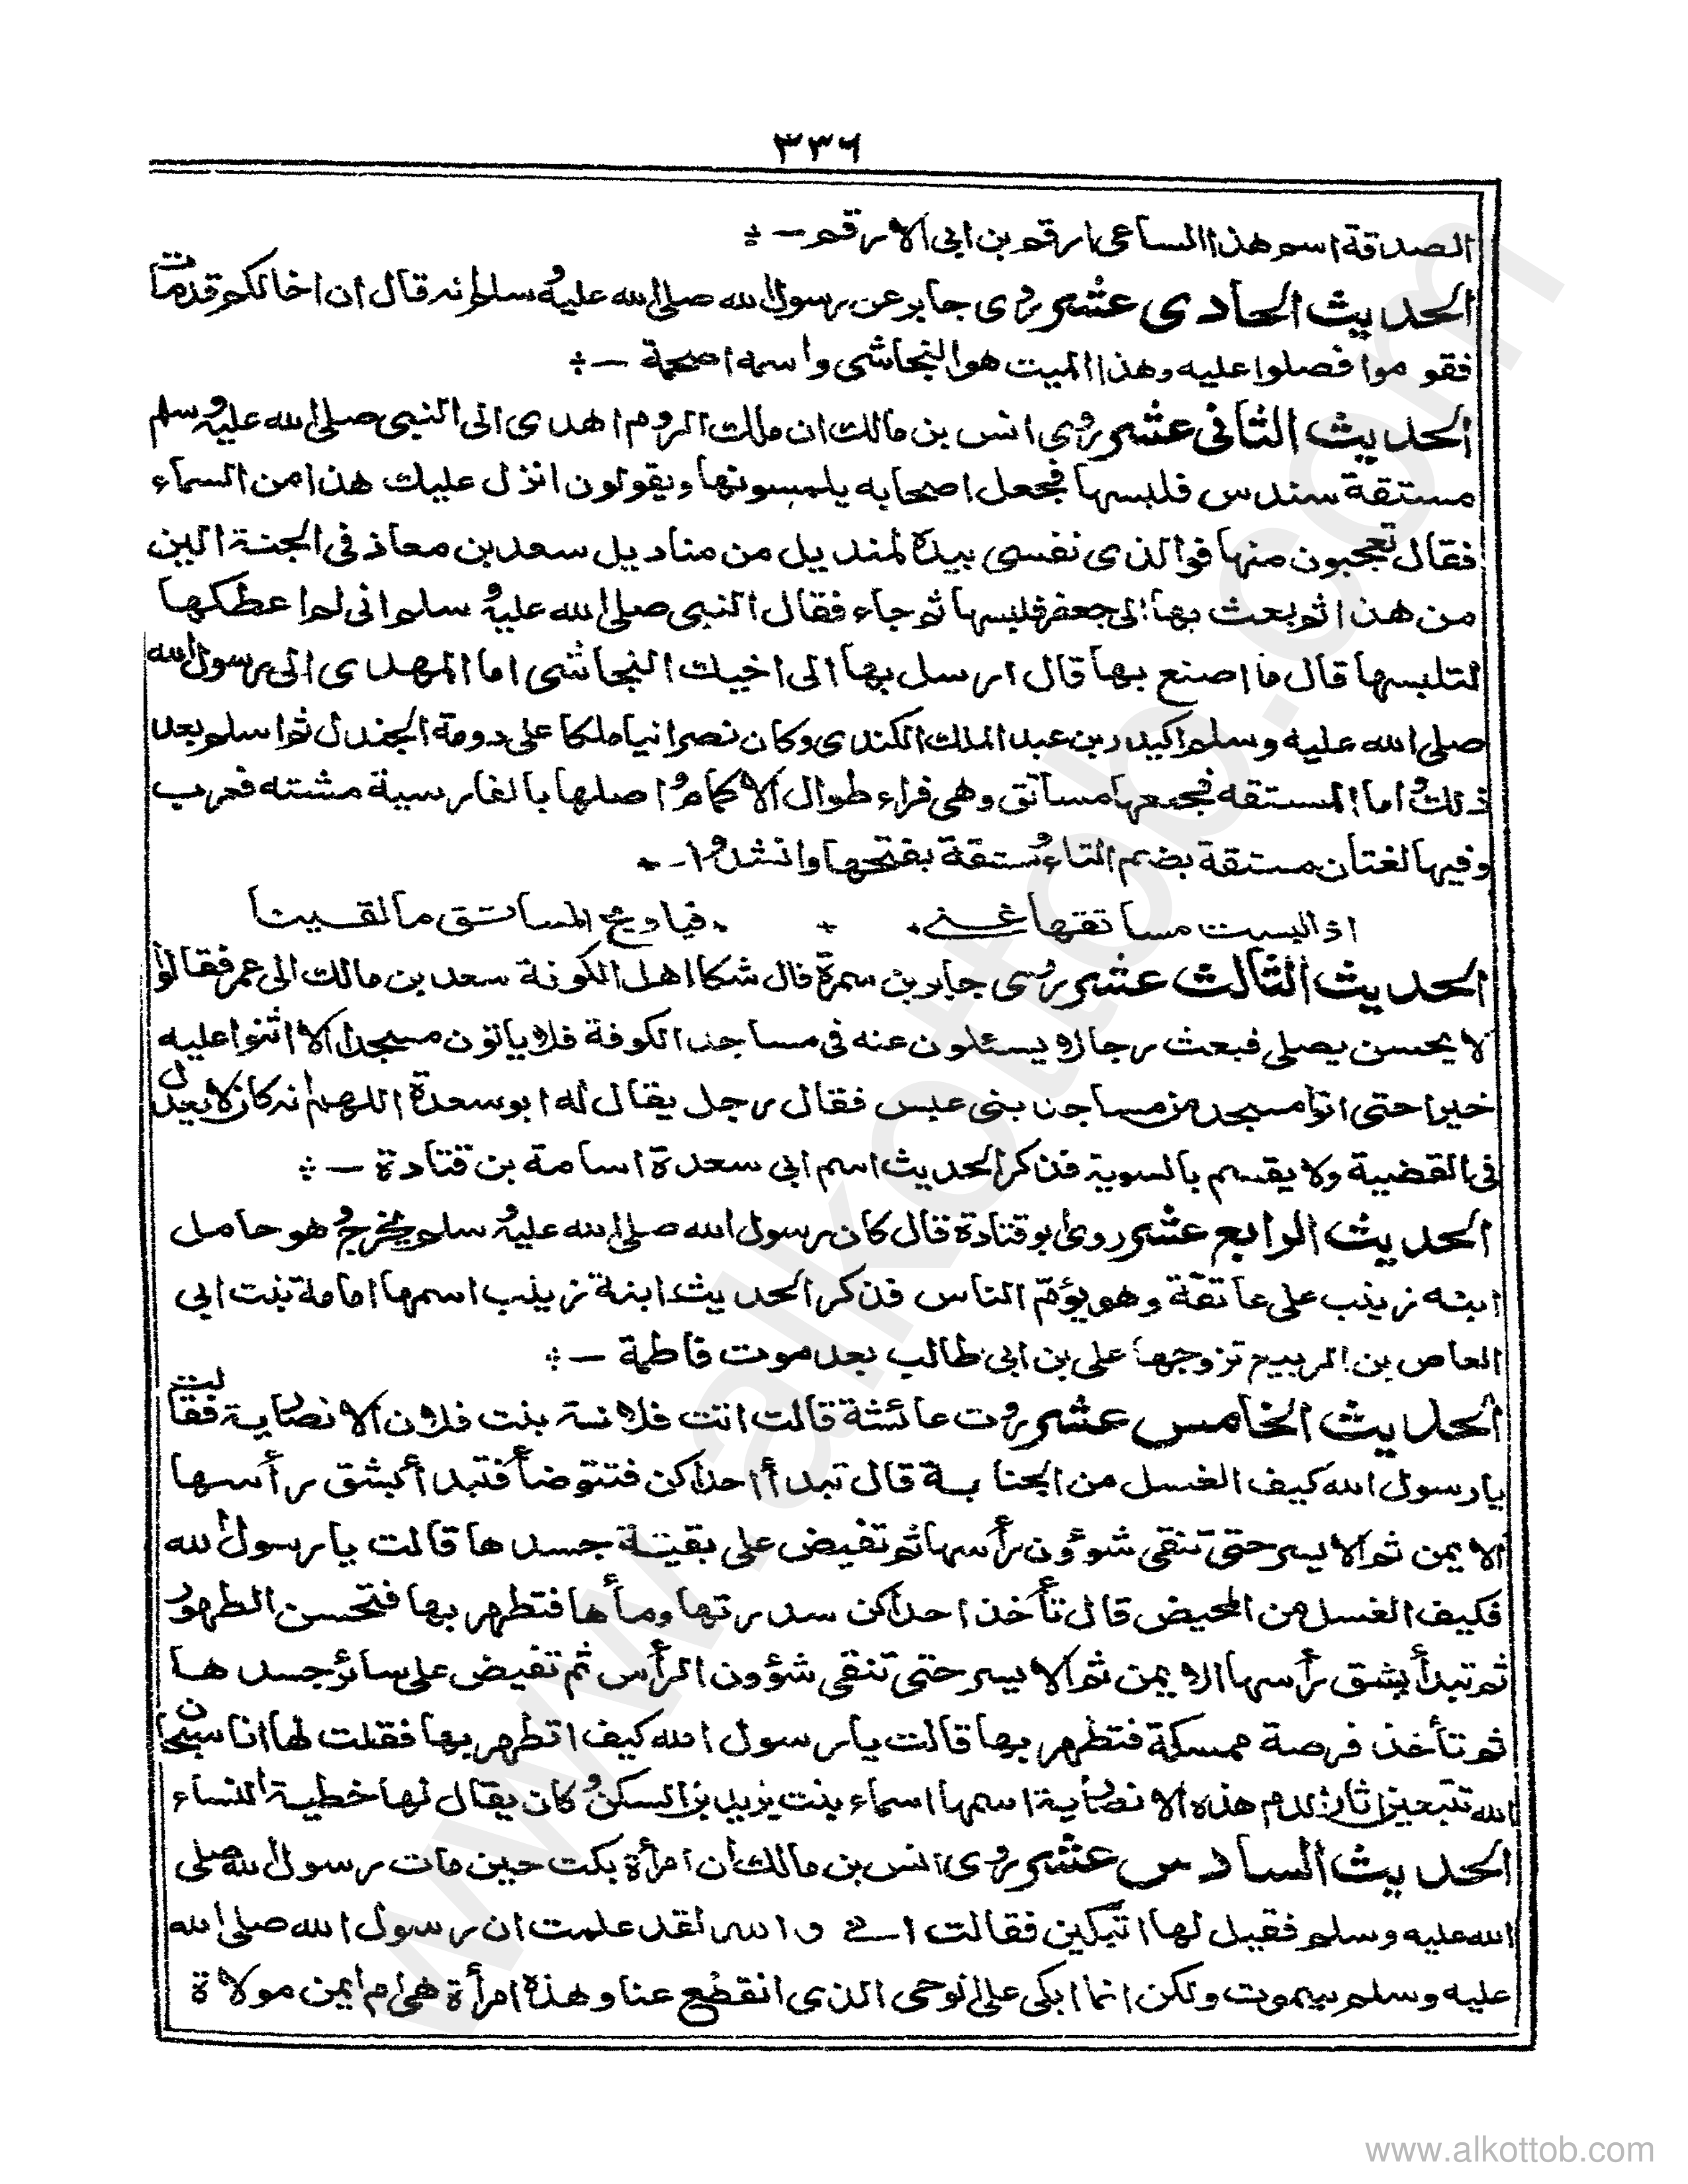 ٣٣٦
الصدقة اسم هذا الساعى ارقم بن ابى الارقم -
الحديث الحادى عشر روى جابر عن رسول الله صلى الله عليه وسلم انه قال ان اخا لكم قد مات
فقو موا فصلوا عليه وهذا الميت هو النجاشى واسمه اصحمة -
الحديث الثانى عشر روى انس بن مالك ان ملك الروم اهدى الى النبى صلى الله عليه وسلم
مستقة سندس فلبسها فجعل اصحابه يلمسونها ويقولون انزل عليك هذا من السماء
فقال تعجبون منها فوالذى نفسى بيده لمنديل من مناديل سعد بن معاذ فى الجنة الين
من هذا ثم بعث بها الى جعفر فلبسها ثم جاء فقال النبى صلى الله عليه وسلم انى لم اعطكها
لتلبسها قال ما اصنع بها قال ارسل بها الى اخيك النجاشى اما المهدى الى رسول الله
صلى الله عليه وسلم اكيدر بن عبد الملك الكندى وكان نصرانيا ملكا على دومة الجندل ثم اسلم بعد
ذلك واما المستقه فجمعها مساتق وهى فراء طوال الاكمام واصلها بالفارسية مشته فعرب
وفيها لغتان مستقة بضم التاء ومستقة بفتحها وانشدوا -
اذا لبست مساتقها غنى فيا ويح المساتق ما لقينا
الحديث الثالث عشر روى جابر بن سمرة قال شكا اهل الكوفة سعد بن مالك الى عمر فقالوا
لا يحسن يصلى فبعث رجالا يسئلون عنه فى مساجد الكوفة فلا ياتون مسجدا الا اثنوا عليه
خيرا حتى اتوا مسجد من مساجد بنى عبس فقال رجل يقال له ابو سعدة اللهم انه كان لا يعدل
فى القضية ولا يقسم بالسوية فذكر الحديث اسم ابى سعدة اسامة بن قتادة -
الحديث الرابع عشر روى ابو قتادة قال كان رسول الله صلى الله عليه وسلم يخرج وهو حامل
ابنه زينب على عاتقة وهو يؤمّ الناس فذكر الحديث ابنة زينب اسمها امامة بنت ابى
العاص بن الربيع تزوجها على بن ابى طالب بعد موت فاطمة -
الحديث الخامس عشر روت عائشة قالت اتت فلانة بنت فلان الانصارية فقالت
يا رسول الله كيف الغسل من الجنابة قال تبدأ احداكن فتتوضأ فتبدأ بشق رأسها
الايمن ثم الايسر حتى تنقى شوؤن رأسها ثم تفيض على بقية جسدها قالت يا رسول الله
فكيف الغسل من المحيض قال تأخذ احداكن سدرتها ومأها فتطهر بها فتحسن الطهور
ثم تبدأ بشق رأسها الايمن ثم الايسر حتى تنقى شؤون الرأس ثم تفيض على سائر جسدها
ثم تأخذ فرصة ممسكة فتطهر بها قالت يا رسول الله كيف اتطهر بها فقلت لها انا سبحان
الله تتبعين اثار الدم هذه الانصارية اسمها اسماء بنت يزيد بن السكن وكان يقال لها خطيبة النساء
الحديث السادس عشر روى انس بن مالك ان امرأة بكت حين مات رسول الله صلى
الله عليه وسلم فقيل لها اتبكين فقالت والله لقد علمت ان رسول الله صلى الله
عليه وسلم سيموت ولكن انما ابكى على الوحى الذى انقطع عنا وهذه امرأة هى ام ايمن مولاة
www.alkottob.com
www.alkottob.com